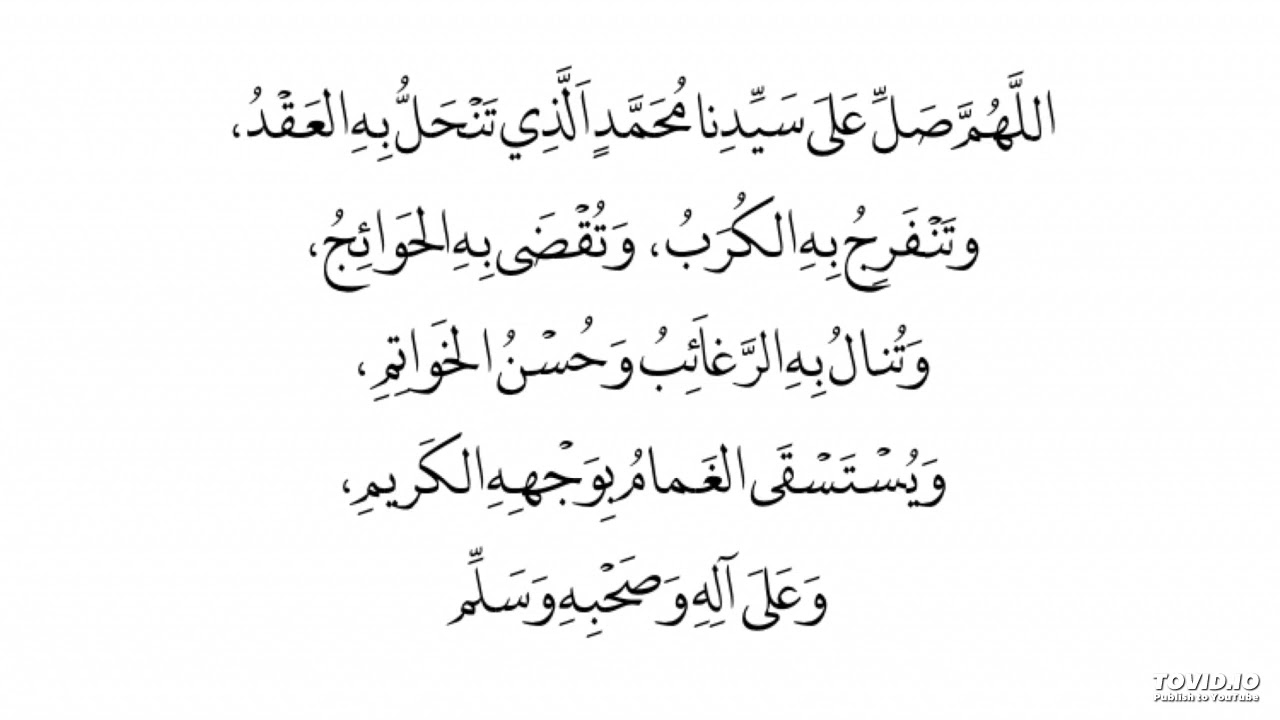 اللَّهُمَّ صَلِّ عَلَى سَيِّدِنا مُحَمَّدٍ اَلَّذِي تَنْحَلُّ بِهِ العَقْدُ،
وتَنْفَرِجُ بِهِ الكُرَبُ، وَتُقْضَى بِهِ الحَوَائِجُ،
وَتُنالُ بِهِ الرَّغائَِبُ وَحُسْنُ الخَوَاتِمِ،
وَيُسْتَسْقَى الغَمامُ بِوَجْهِهِ الكَريمِ،
وَعَلَى آلِهِ وَصَحْبِهِ وَسَلِّم
TOVID.IO
Publish to YouTube